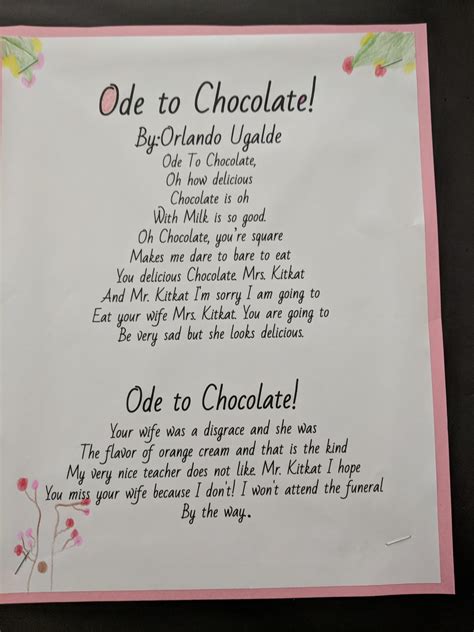 Ode to Chocolate!
By:Orlando Ugalde
Ode To Chocolate,
Oh how delicious
Chocolate is oh
With Milk is so good.
Oh Chocolate, you're square
Makes me dare to bare to eat
You delicious Chocolate. Mrs. Kitkat
And Mr. Kitkat I'm sorry I am going to
Eat your wife Mrs. Kitkat. You are going to
Be very sad but she looks delicious.
Ode to Chocolate!
Your wife was a disgrace and she was
The flavor of orange cream and that is the kind
My very nice teacher does not like. Mr. Kitkat I hope
You miss your wife because I don't! I won't attend the funeral
By the way..